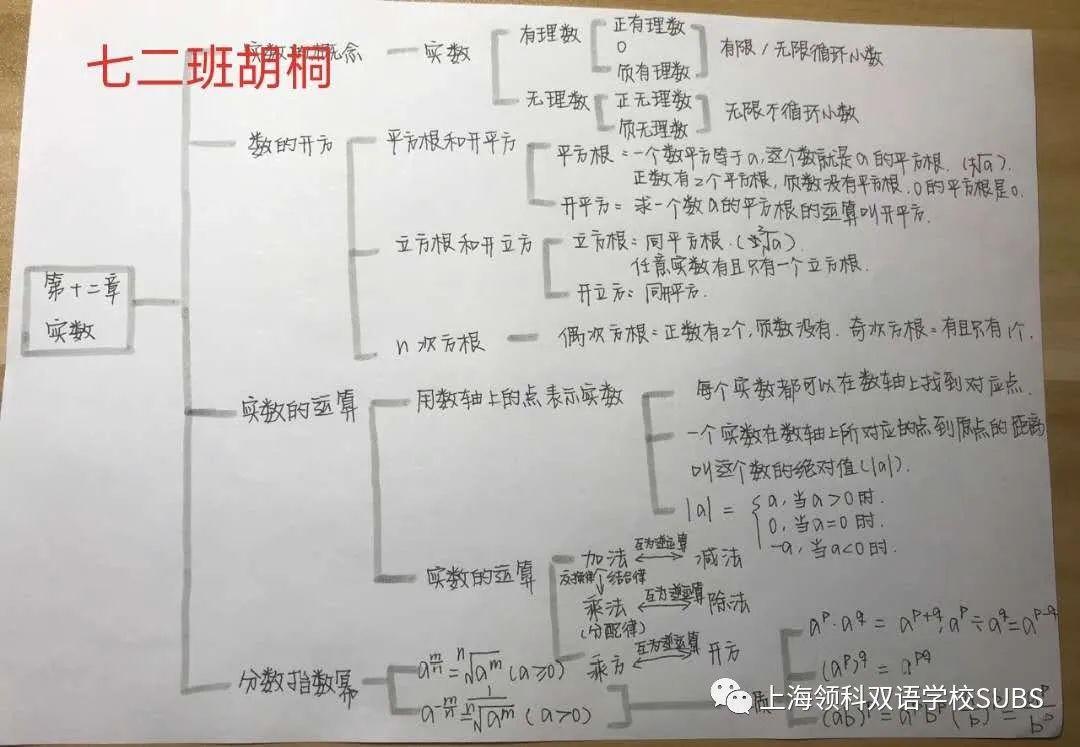 七二班胡桐
实数的概念 — 实数
有理数
正有理数
0
质有理数
有限/无限循环小数
无理数
正无理数
质无理数
无限不循环小数
数的开方
平方根和开平方
平方根=一个数平方等于a,这个数就是a的平方根. (±√a).
正数有2个平方根,质数没有平方根.0的平方根是0.
开平方=求一个数a的平方根的运算叫开平方.
立方根和开立方
立方根=同平方根.
任意实数有且只有一个立方根.
开立方=同开平方.
n次方根 — 偶次方根=正数有2个,质数没有.奇次方根=有且只有1个.
第十二章
实数
实数的运算
用数轴上的点表示实数
每个实数都可以在数轴上找到对应点.
一个实数在数轴上所对应的点到原点的距离
叫这个数的绝对值(|a|).
|a| =
a,当a>0时.
0,当a=0时.
-a,当a<0时.
实数的运算
加法 互为逆运算 减法
交换律 结合律
乘法 互为逆运算 除法
(分配律)
乘方 互为逆运算 开方
分数指数幂
a^(m/n)=ⁿ√a^m (a≥0)
a^(-m/n)=1/ⁿ√a^m (a>0)
a^p·a^q = a^(p+q), a^p÷a^q=a^(p-q)
(a^p)^q = a^(pq)
上海领科双语学校SUBS